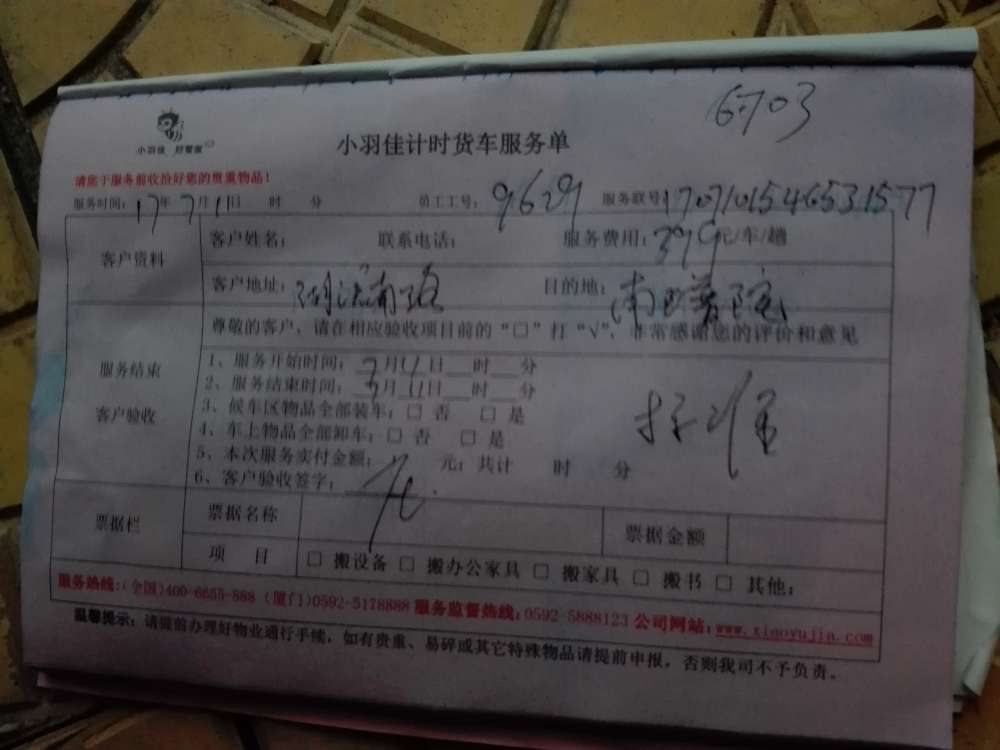 6703
小羽佳 好管家
小羽佳计时货车服务单
请您于服务前收拾好您的贵重物品！
服务时间：17年7月11日 时 分 员工工号：9629 服务联号1707101546531577
客户资料
客户姓名： 联系电话： 服务费用：399元/车/趟
客户地址：湖滨南路 目的地：
尊敬的客户，请在相应验收项目前的“□”打“√”，非常感谢您的评价和意见
服务结束
客户验收
1、服务开始时间：7月11日__时__分
2、服务结束时间：7月11日__时__分
3、候车区物品全部装车：□ 否 □ 是
4、车上物品全部卸车：□ 否 □ 是
5、本次服务实付金额： 元；共计 时 分
6、客户验收签字：
票据栏
票据名称 票据金额
项 目 □ 搬设备 □ 搬办公家具 □ 搬家具 □ 搬书 □ 其他：
服务热线：(全国)400-6655-888 (厦门)0592-5178888 服务监督热线：0592-5888123 公司网站：www.xiaoyujia.com
温馨提示：请提前办理好物业通行手续，如有贵重、易碎或其它特殊物品请提前申报，否则我司不予负责。